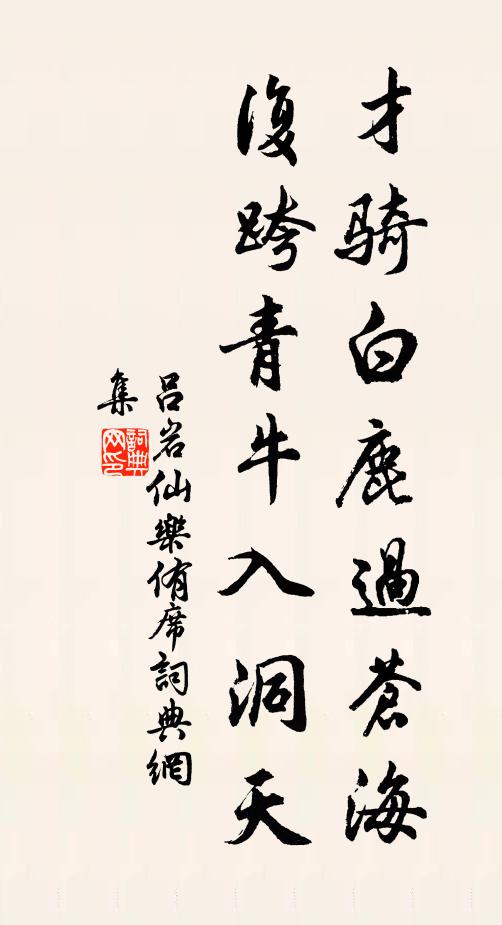 才骑白鹿過蒼海
復跨青牛入洞天
吕岩仙樂侑席詞典網
集
詞典网印